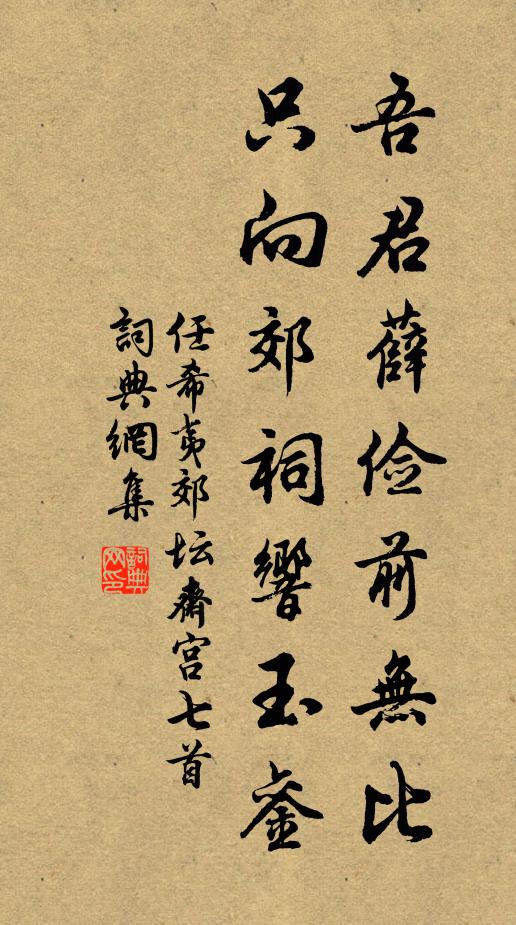 吾君薛俭前無比
只向郊祠響玉銮
任希夷郊坛斋宫七首
詞典網集
詞典网印